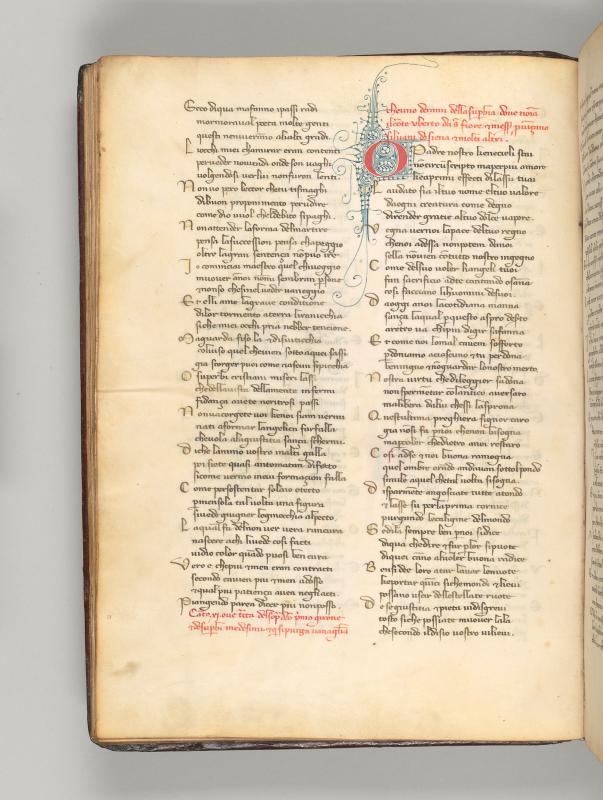 Ecco diqua mafanno ipassi radi
mormoraual poeta molte genti
questi nenuieranno aliali gradi
L occhi miei chamirar eran contenti
per ueder nouitadi onde son uaghi
uolgendosi uerlui nonfuron lenti
N on uo pero lector chetu tismaghi
dibuon proponimento per udire
come dio uuol cheldebito sipaghi
N on attender laforma delmartire
pensa lasuccession pensa chapeggio
oltre lagran sentença non puo ire
I o cominciai maestro quel chiueggio
muouer anoi non sembran persone
nonso che nel ueder uaneggio
E t elli ame lagraue conditione
dilor tormento aterra lirannicchia
siche miei occhi pria nebber tencione
M a guarda fiso la et disuiticchia
coluiso quel cheuien sotto aquei sassi
gia scorger puoi come ciascun sipicchia
O superbi cristiani miseri lassi
che della uista della mente infermi
fidança auete neritrosi passi
N on uacorgete uoi che noi siam uermi
nati aformar langelica farfalla
cheuola alagiustitia sança schermi
D iche lanimo uostro inalti galla
poi siete quasi antomata in difetto
sicome uermo incui formation falla
C ome persostentar solaio otetto
per mensola tal uolta una figura
siuede giugner leginocchia alpecto
L aqual fa delnon uer uera rancura
nascere achi lauede cosi fatti
uidio color quando puosi ben cura
V ero e chepiu emen eran contracti
secondo cauien piu emen adosso
et qual piu patiença auea negliacti
Piangendo parea dicer piu nonposso
Canto xi oue tracta del sopradicto primo girone
et desuperbi medesimi et qui sipurga uanagloria
cheuno deranni della superbia doue noma
il conte uberto di santa fiore et messer prouinçano
siluani disiena et molti altri
O Padre nostro cheneicieli stai
non circuscripto ma per piu amore
cheaprimi effecti dilassu tuai
L audato sia iltuo nome eltuo ualore
daogni creatura come degno
dirender gratie altuo dolce uapore
V egna uernoi lapace deltuo regno
chenoi adessa nonpotem danoi
sella non uien contutto nostro ingegno
C ome delsuo uoler liangeli tuoi
fan sacrificio adte cantando osana
cosi facciano lihuomini desuoi
D aoggi anoi lacotidiana manna
sança laqual per questo aspro deserto
arretro ua chipiu digir saffanna
E t come noi lomal cauem sofferto
perdoniamo aciascuno et tu perdona
benigno et non guardar lonostro merto
N ostra uirtu chedileggier sadona
non spermentar colantico auersaro
ma libera dilui chessi lasprona
Q uest ultima preghiera signor caro
gia nosi fa pernoi chenon bisogna
maper color chedietro anoi restaro
C osi adse et noi buona ramogna
quel ombre orando andauan sottol pondo
simile aquel chetal uolta sisogna
D isparmente angosciate tutte atondo
et lasse su perlaprima cornice
purgando lecaligine delmondo
S e dila sempre ben pernoi sidice
diqua chedire et far per lor sipuote
diquei canno aluoler buona radice
B en siede loro atar lauar lenote
cheportar quinci siche mondi et lieui
possano uscir dellestellate ruote
D e segiustitia et pieta uidisgreui
tosto siche possiate muouer lala
chesecondo ildisio uostro uilieui